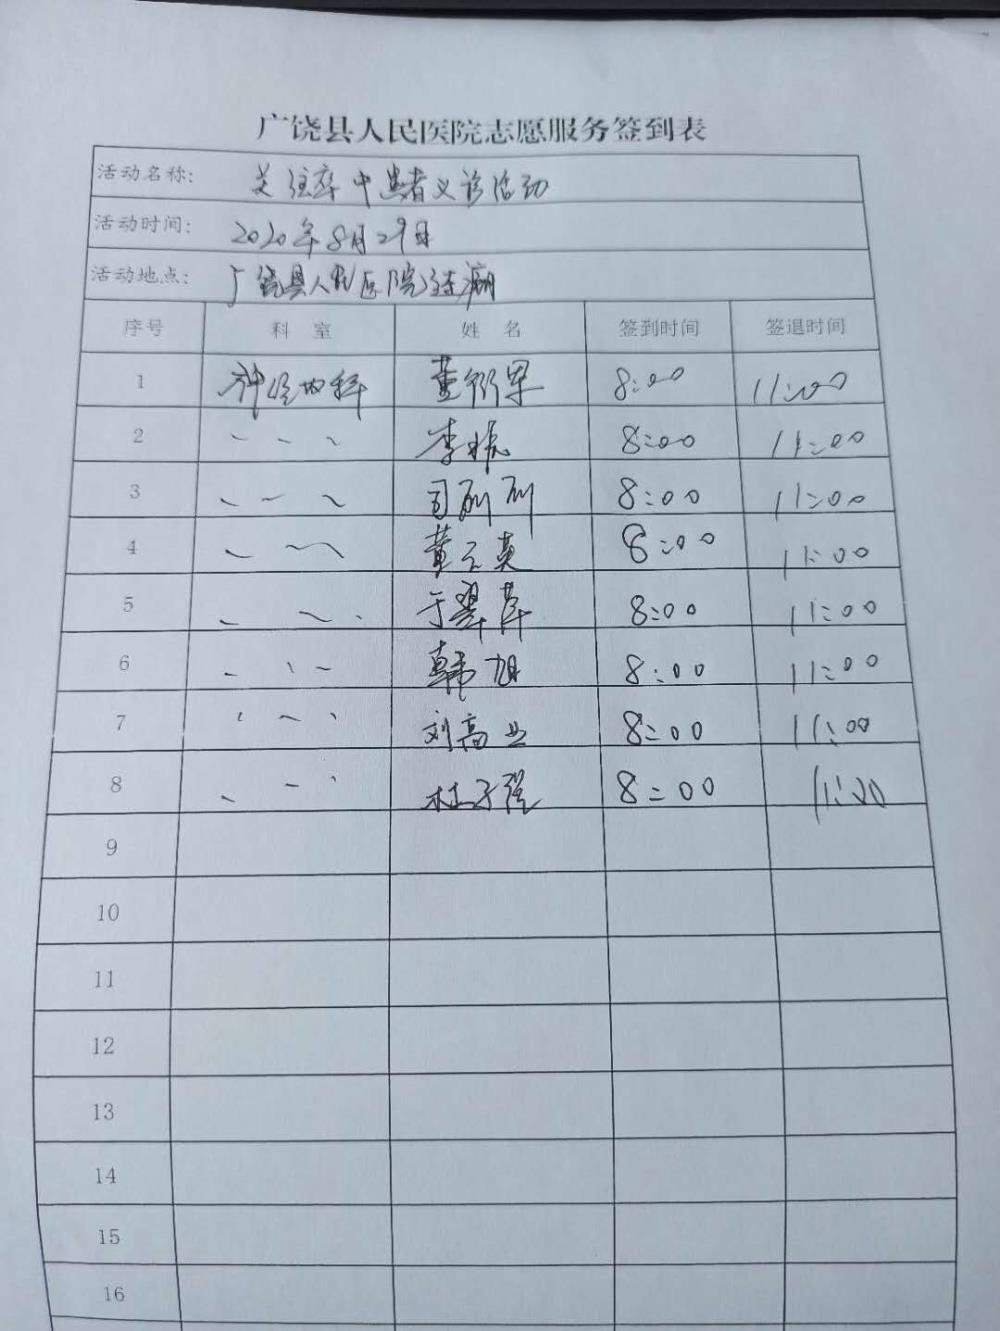 广饶县人民医院志愿服务签到表
活动名称: 关注卒中患者义诊活动
活动时间: 2020年8月29日
活动地点: 广饶县人民医院
序号 科 室 姓 名 签到时间 签退时间
1 神经内科 董 军 8:00 11:00
2 李 8:00 11:00
3 司 8:00 11:00
4 黄云英 8:00 11:00
5 于翠萍 8:00 11:00
6 韩旭 8:00 11:00
7 刘高业 8:00 11:00
8 杜子强 8:00 11:00
9
10
11
12
13
14
15
16